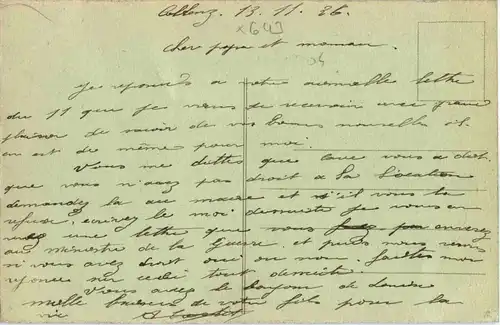 Coblenz, 13.11.26.
x 649
cher papa et maman.
x4
Je réponds à votre aimable lettre
du 11 que je viens de recevoir avec grand
plaisir de savoir de vos bonnes nouvelles il
en est de même pour moi.
Vous me dites que l'on vous a dit
que vous n'avez pas droit à la location
demandez la au maire et s'il vous la
refuse, écrivez le moi de suite je vous en
une lettre que vous enverrez
au ministre de la Guerre. et puis vous
si vous avez droit oui ou non. faites moi
réponse sur ceci tout de suite.
Vous avez le bonjour de Louise
mille baisers de votre fils pour la
vie